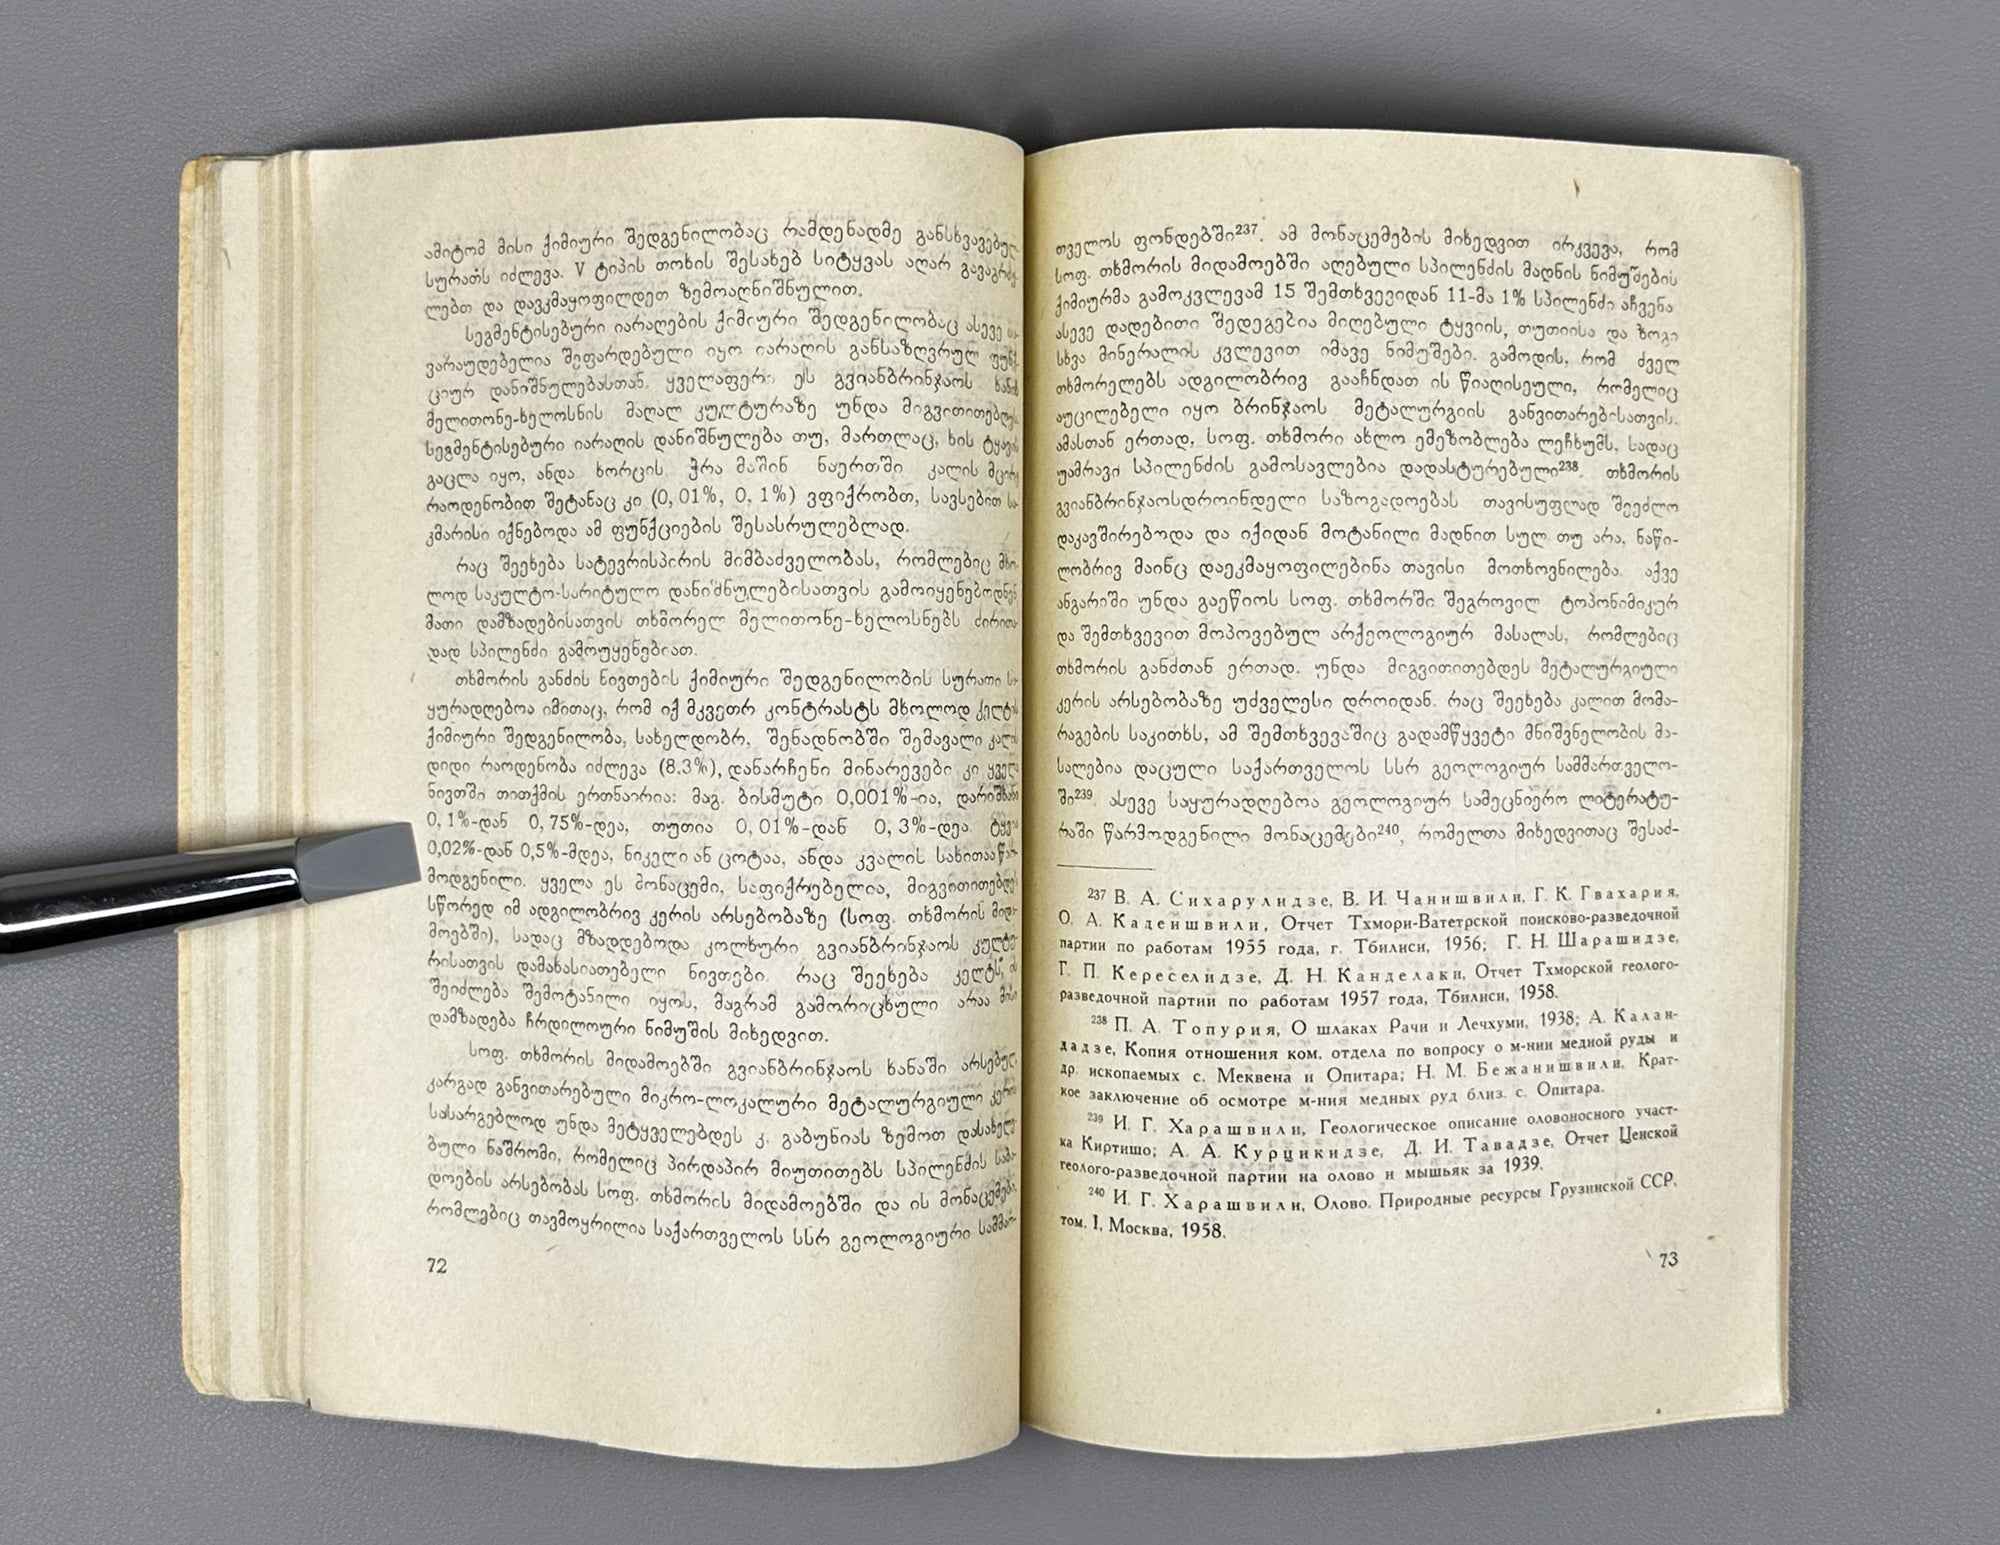 ამიტომ მისი ქიმიური შედგენილობაც რამდენადმე განსხვავებულ
სურათს იძლევა. V ტიპის თოხის შესახებ სიტყვას აღარ გავაგრძე-
ლებთ და დავკმაყოფილდეთ ზემოაღნიშნულით.
სეგმენტისებური იარაღების ქიმიური შედგენილობაც ასევე
ვარაუდებელია შეფარდებული იყო იარაღის განსაზღვრულ ფუნქ-
ციურ დანიშნულებასთან. ყველაფერი ეს გვიანბრინჯაოს ხანის
მელითონე-ხელოსნის მაღალ კულტურაზე უნდა მიგვითითებდეს.
სეგმენტისებური იარაღის დანიშნულება თუ, მართლაც, ხის ტყავის
გაცლა იყო, ანდა ხორცის ჭრა მაშინ ნაერთში კალის მცირე
რაოდენობით შეტანაც კი (0,01%, 0,1%) ვფიქრობთ, სავსებით სა-
კმარისი იქნებოდა ამ ფუნქციების შესასრულებლად.
რაც შეეხება სატევრისპირის მიმბაძველობას, რომლებიც მხო-
ლოდ საკულტო-სარიტულო დანიშნულებისათვის გამოიყენებოდნენ
მათი დამზადებისათვის თხმორელ მელითონე-ხელოსნებს ძირითა-
დად სპილენძი გამოუყენებიათ.
თხმორის განძის ნივთების ქიმიური შედგენილობის სურათი სა-
ყურადღებოა იმითაც, რომ იქ მკვეთრ კონტრასტს მხოლოდ კელტის
ქიმიური შედგენილობა, სახელდობრ, შენადნობში შემავალი კალის
დიდი რაოდენობა იძლევა (8.3%), დანარჩენი მინარევები კი ყველა
ნივთში თითქმის ერთნაირია: მაგ. ბისმუტი 0,001%-ია, დარიშხანი
0,1%-დან 0,75%-დეა, თუთია 0,01%-დან 0,3%-დეა ტყვია
0,02%-დან 0,5%-მდეა, ნიკელი ან ცოტაა, ანდა კვალის სახითაა წარ-
მოდგენილი. ყველა ეს მონაცემი, საფიქრებელია, მიგვითითებდეს
სწორედ იმ ადგილობრივ კერის არსებობაზე (სოფ. თხმორის მიდა-
მოებში), სადაც მზადდებოდა კოლხური გვიანბრინჯაოს კულტუ-
რისათვის დამახასიათებელი ნივთები. რაც შეეხება კელტს, ის
შეიძლება შემოტანილი იყოს, მაგრამ გამორიცხული არაა მისი
დამზადება ჩრდილოური ნიმუშის მიხედვით.
სოფ. თხმორის მიდამოებში გვიანბრინჯაოს ხანაში არსებულ
კარგად განვითარებული მიკრო-ლოკალური მეტალურგიული კერის
სასარგებლოდ უნდა მეტყველებდეს კ. გაბუნიას ზემოთ დასახელე-
ბული ნაშრომი, რომელიც პირდაპირ მიუთითებს სპილენძის საბა-
დოების არსებობას სოფ. თხმორის მიდამოებში და ის მონაცემები
რომლებიც თავმოყრილია საქართველოს სსრ გეოლოგიური სამმარ-
72
თველოს ფონდებში²³⁷. ამ მონაცემების მიხედვით ირკვევა, რომ
სოფ. თხმორის მიდამოებში აღებული სპილენძის მადნის ნიმუშების
ქიმიურმა გამოკვლევამ 15 შემთხვევიდან 11-მა 1% სპილენძი აჩვენა
ასევე დადებითი შედეგებია მიღებული ტყვიის, თუთიისა და ზოგი
სხვა მინერალის კვლევით იმავე ნიმუშები. გამოდის, რომ ძველ
თხმორელებს ადგილობრივ გააჩნდათ ის წიაღისეული, რომელიც
აუცილებელი იყო ბრინჯაოს მეტალურგიის განვითარებისათვის.
ამასთან ერთად, სოფ. თხმორი ახლო ემეზობლება ლეჩხუმს, სადაც
უამრავი სპილენძის გამოსავლებია დადასტურებული²³⁸. თხმორის
გვიანბრინჯაოსდროინდელი საზოგადოებას თავისუფლად შეეძლო
დაკავშირებოდა და იქიდან მოტანილი მადნით სულ თუ არა, ნაწი-
ლობრივ მაინც დაეკმაყოფილებინა თავისი მოთხოვნილება. აქვე
ანგარიში უნდა გაეწიოს სოფ. თხმორში შეგროვილ ტოპონიმიკურ
და შემთხვევით მოპოვებულ არქეოლოგიურ მასალას, რომლებიც
თხმორის განძთან ერთად. უნდა მიგვითითებდეს მეტალურგიული
კერის არსებობაზე უძველესი დროიდან. რაც შეეხება კალით მომა-
რაგების საკითხს, ამ შემთხვევაშიც გადამწყვეტი მნიშვნელობის მა-
სალებია დაცული საქართველოს სსრ გეოლოგიურ სამმართველო-
ში²³⁹. ასევე საყურადღებოა გეოლოგიურ სამეცნიერო ლიტერატუ-
რაში წარმოდგენილი მონაცემები²⁴⁰, რომელთა მიხედვითაც შესაძ-
²³⁷ В. А. Сихарулидзе, В. И. Чанишвили, Г. К. Гвахария,
О. А. Кадеишвили, Отчет Тхмори-Ватетрской поисково-разведочной
партии по работам 1955 года, г. Тбилиси, 1956; Г. Н. Шарашидзе,
Г. П. Кереселидзе, Д. Н. Канделаки, Отчет Тхморской геолого-
разведочной партии по работам 1957 года, Тбилиси, 1958.
²³⁸ П. А. Топурия, О шлаках Рачи и Лечхуми, 1938; А. Калан-
дадзе, Копия отношения ком. отдела по вопросу о м-нии медной руды и
др. ископаемых с. Меквена и Опитара; Н. М. Бежанишвили, Крат-
кое заключение об осмотре м-ния медных руд близ. с. Опитара.
²³⁹ И. Г. Харашвили, Геологическое описание оловоносного участ-
ка Киртишо; А. А. Курцикидзе, Д. И. Тавадзе, Отчет Ценской
геолого-разведочной партии на олово и мышьяк за 1939.
²⁴⁰ И. Г. Харашвили, Олово. Природные ресурсы Грузинской ССР,
том. I, Москва, 1958.
73